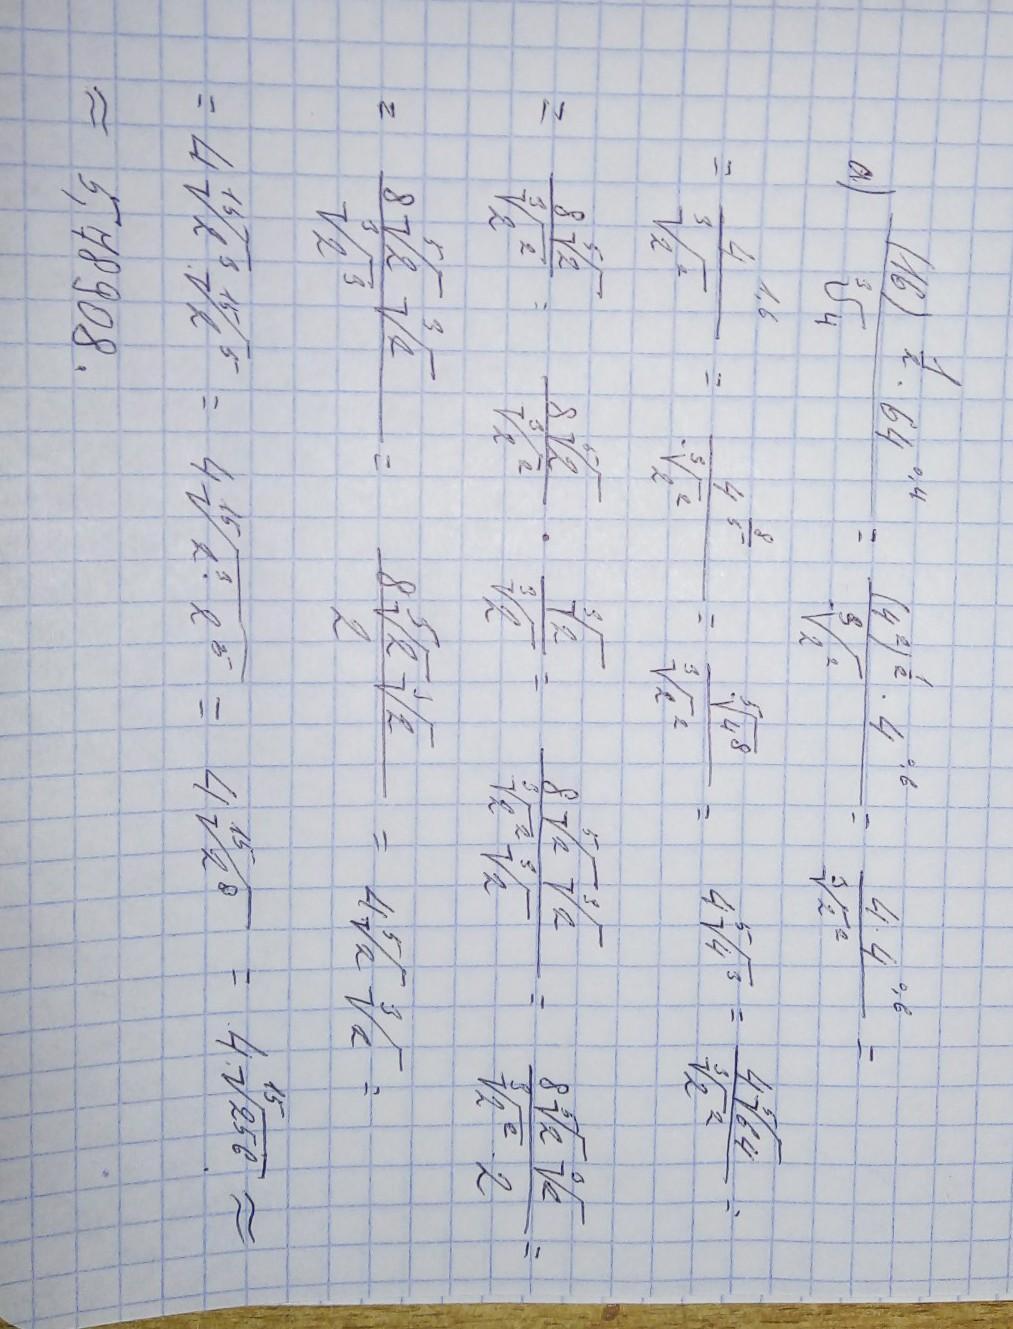 a) (16)^{1/2} · 64^{0,4} / ∛4 = (4²)^{1/2} · 4^{0,6} / ∛2² = 4 · 4^{0,6} / ∛2² =
= 4^{1,6} / ∛2² = 4^{8/5} / ∛2² = ⁵√4⁸ / ∛2² = 4 ⁵√4³ = 4 ⁵√64 / ∛2² =
= 8 ⁵√2 / ∛2² = 8 ⁵√2 / ∛2² · ∛2 / ∛2 = 8 ⁵√2 ∛2 / ∛2² ∛2 = 8 ⁵√2 ∛2 / ∛2² · 2 =
= 8 ⁵√2 ∛2 / ∛2³ = 8 ⁵√2 ∛2 / 2 = 4 ⁵√2 ∛2 =
= 4 ¹⁵√2³ · ¹⁵√2⁵ = 4 ¹⁵√2³ · 2⁵ = 4 ¹⁵√2⁸ = 4 · ¹⁵√256 ≈
≈ 5,78908.